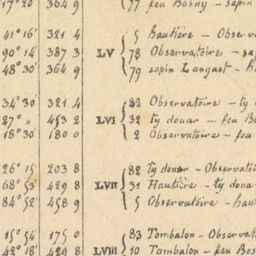 17° 20' 364 9 77 feu Bosny - sapin
41° 16' 321 4 5 Hautière - Observ
90° 14' 387 3 LV 78 Observatoire - sap
48° 30' 364 9 79 sapin Langast -
34° 30' 321 4 31 Observatoire - ty
27° " 453 2 LVI 32 ty douar - feu B
18° 30' 180 0 2 Observatoire - feu
26° 15' 203 8 82 Ty douar - Observatoi
68° 53' 429 8 LVII 31 Hautière - ty doua
84° 52' 458 9 5 Observatoire - haut
15° 54' 175 0 83 Tombalon - Observat
42° 18' 429 8 LVIII 10 Tombalon - feu Bos